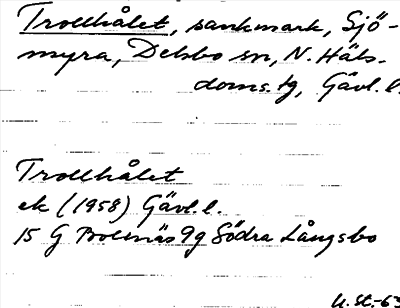 Trollhålet, sankmark, Sjö-
myra, Delsbo sn, N. Häls.
doms.tg, Gävl.l.
Trollhålet
ek (1958) Gävl.l.
15 G Bollnäs 9g Södra Långsbo
U.St.-63